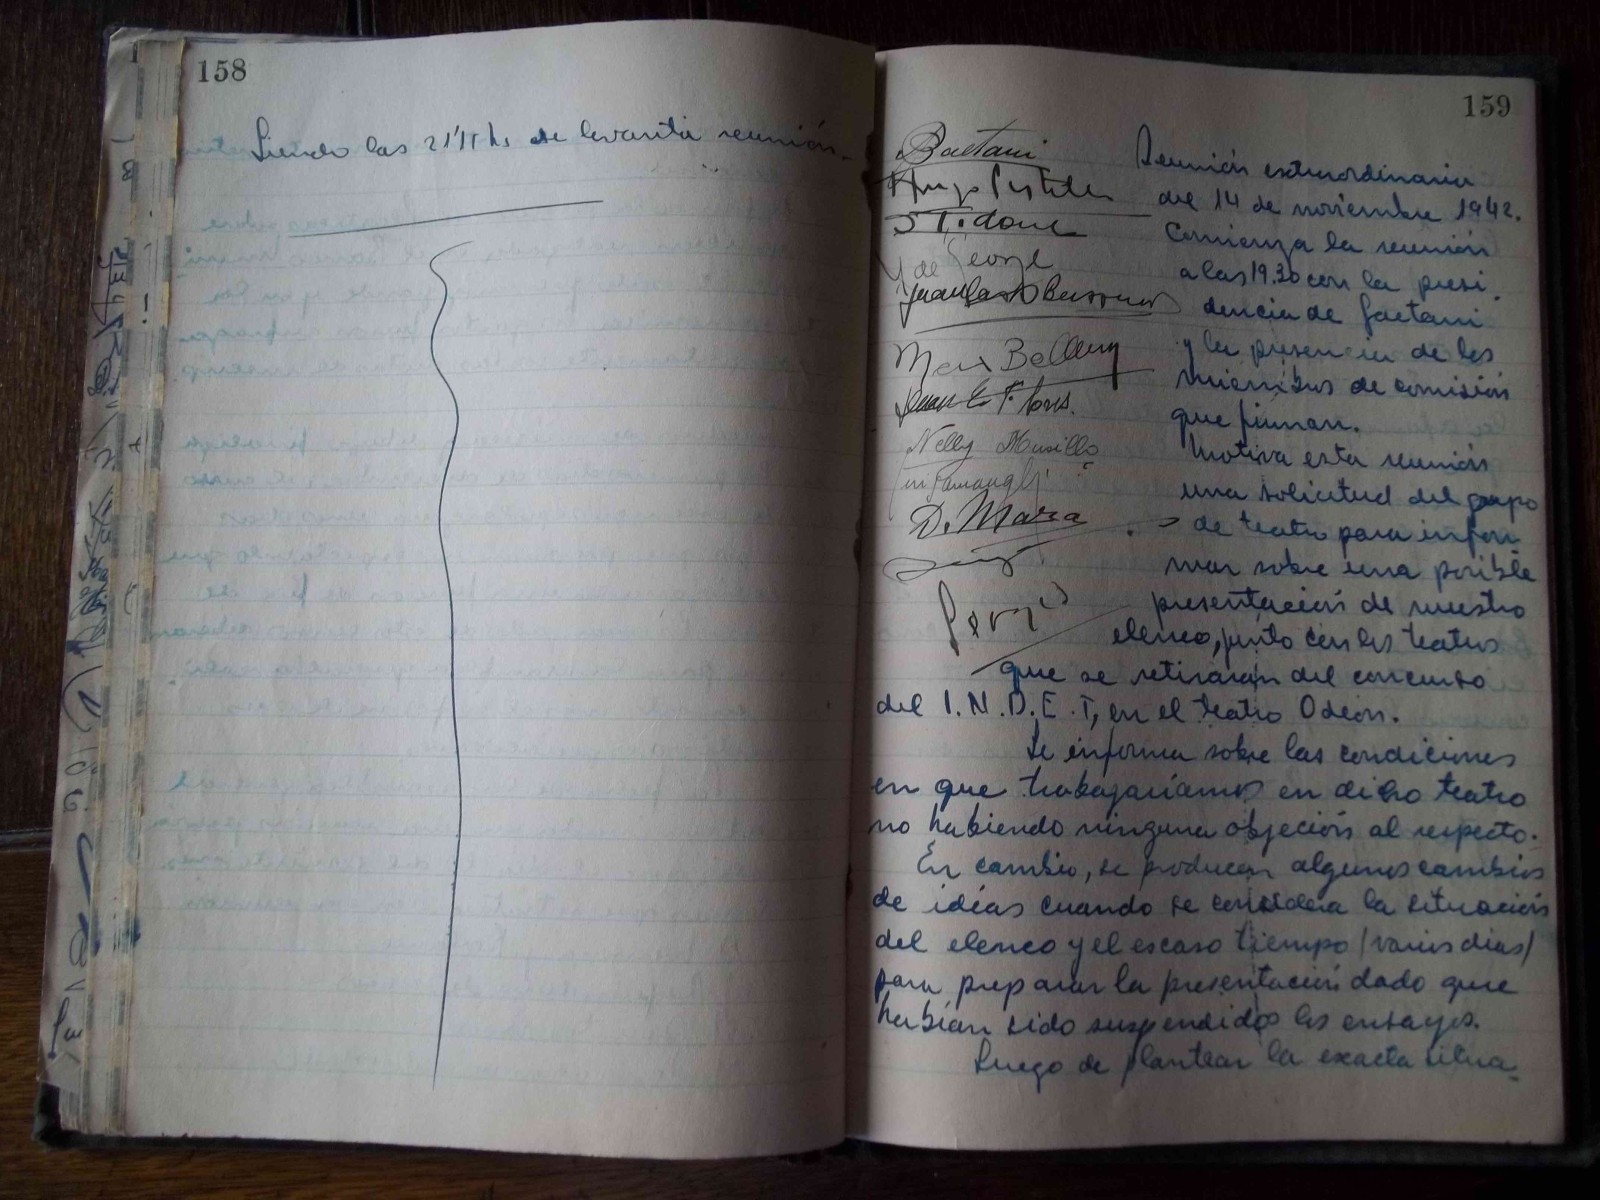 158
Siendo las 21'15 hs se levanta reunión.
159
Gaetani
Hugo
S Tidone
Y de George
Juan Carlos
Max
Juan E. Flores.
Nelly Musillo
D. Maza
Reunión extraordinaria
del 14 de noviembre 1942.
Comienza la reunión
a las 19.30 con la presi
dencia de Gaetani
y la presencia de los
miembros de comisión
que firman.
Motiva esta reunión
una solicitud del grupo
de teatro para infor
mar sobre una posible
presentación de nuestro
elenco, junto con los teatros
que se retiraran del concurso
del I.N.D.E.T, en el teatro Odeón.
Se informa sobre las condiciones
en que trabajaríamos en dicho teatro
no habiendo ninguna objeción al respecto.
En cambio, se producen algunos cambios
de ideas cuando se considera la situación
del elenco y el escaso tiempo (varios dias)
para preparar la presentación dado que
habían sido suspendidos los ensayos.
Luego de plantear la exacta situa-